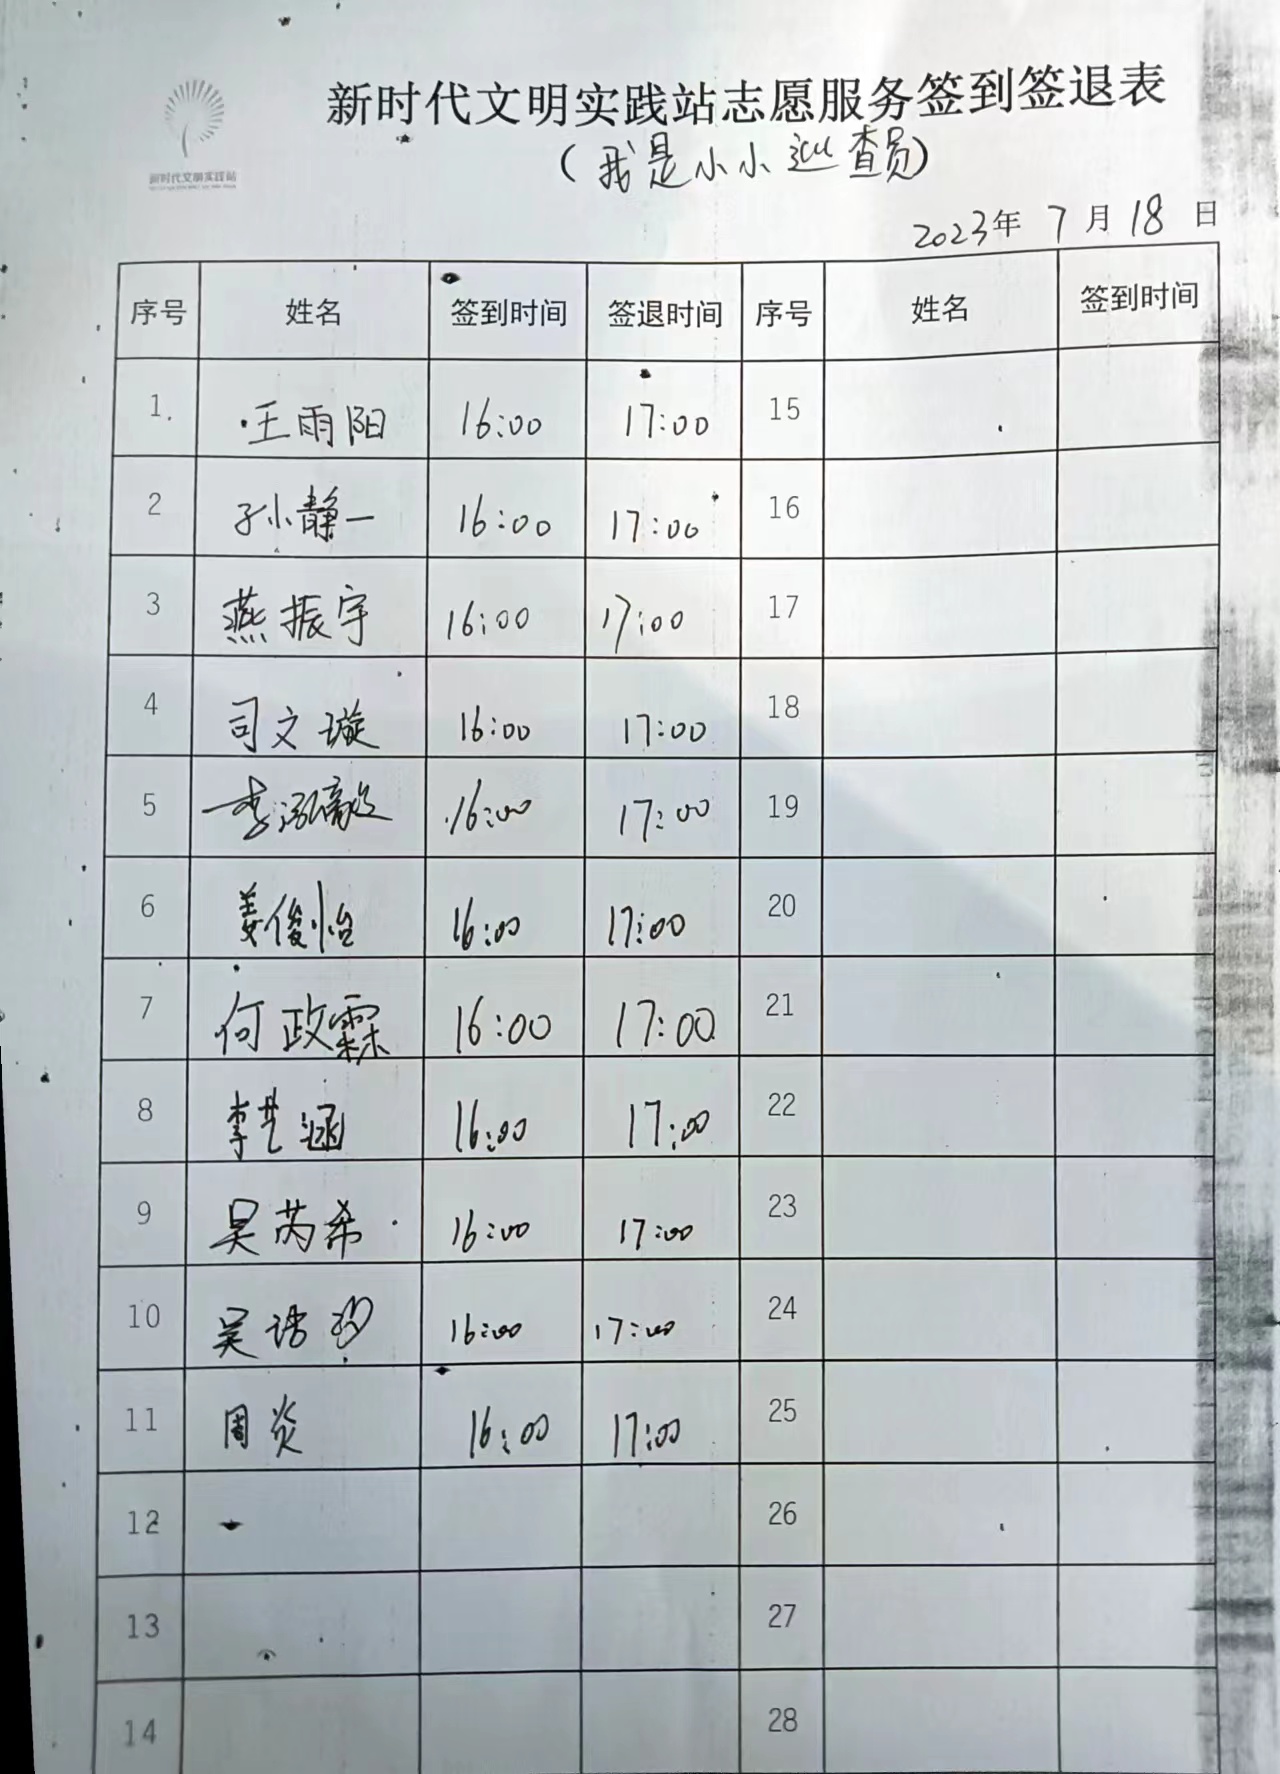 新时代文明实践站志愿服务签到签退表
(我是小小巡查员)
新时代文明实践站
2023年 7月 18日
序号 姓名 签到时间 签退时间 序号 姓名 签到时间
1. 王雨阳 16:00 17:00 15
2 孙小静一 16:00 17:00 16
3 燕振宇 16:00 17:00 17
4 司文璇 16:00 17:00 18
5 李泓毅 16:00 17:00 19
6 姜俊怡 16:00 17:00 20
7 何政霖 16:00 17:00 21
8 李艺涵 16:00 17:00 22
9 吴芮希 16:00 17:00 23
10 吴 16:00 17:00 24
11 周炎 16:00 17:00 25
12 26
13 27
14 28